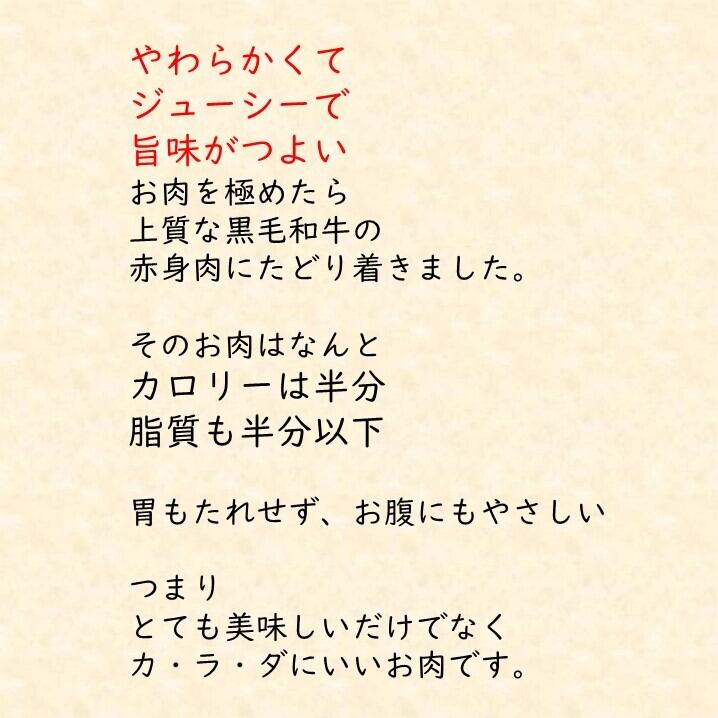 やわらかくて
ジューシーで
旨味がつよい
お肉を極めたら
上質な黒毛和牛の
赤身肉にたどり着きました。
そのお肉はなんと
カロリーは半分
脂質も半分以下
胃もたれせず、お腹にもやさしい
つまり
とても美味しいだけでなく
カ・ラ・ダにいいお肉です。